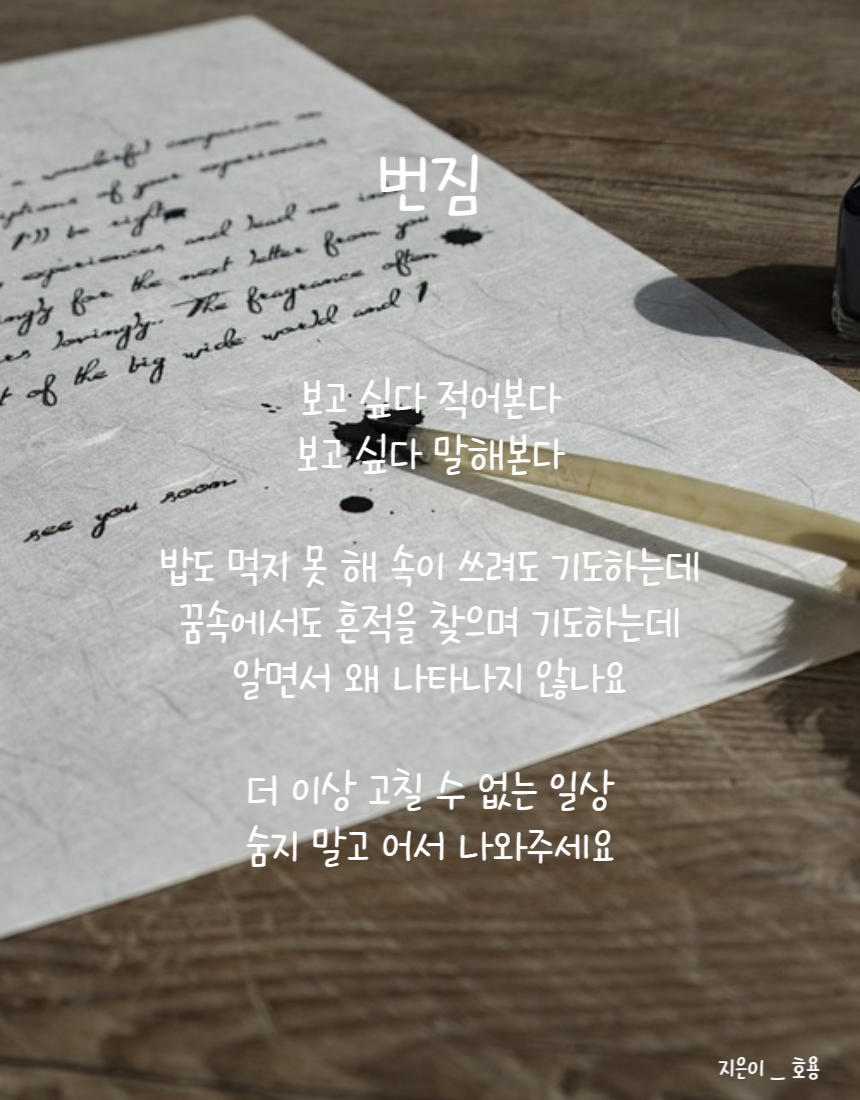 번짐
wonderful companion
of your experiences
I'll be right
experiences and lead me
for the next letter from you
lovingly.. The fragrance often
of the big wide world and I
see you soon
보고 싶다 적어본다
보고 싶다 말해본다
밥도 먹지 못 해 속이 쓰려도 기도하는데
꿈속에서도 흔적을 찾으며 기도하는데
알면서 왜 나타나지 않나요
더 이상 고칠 수 없는 일상
숨지 말고 어서 나와주세요
지은이 _ 호용